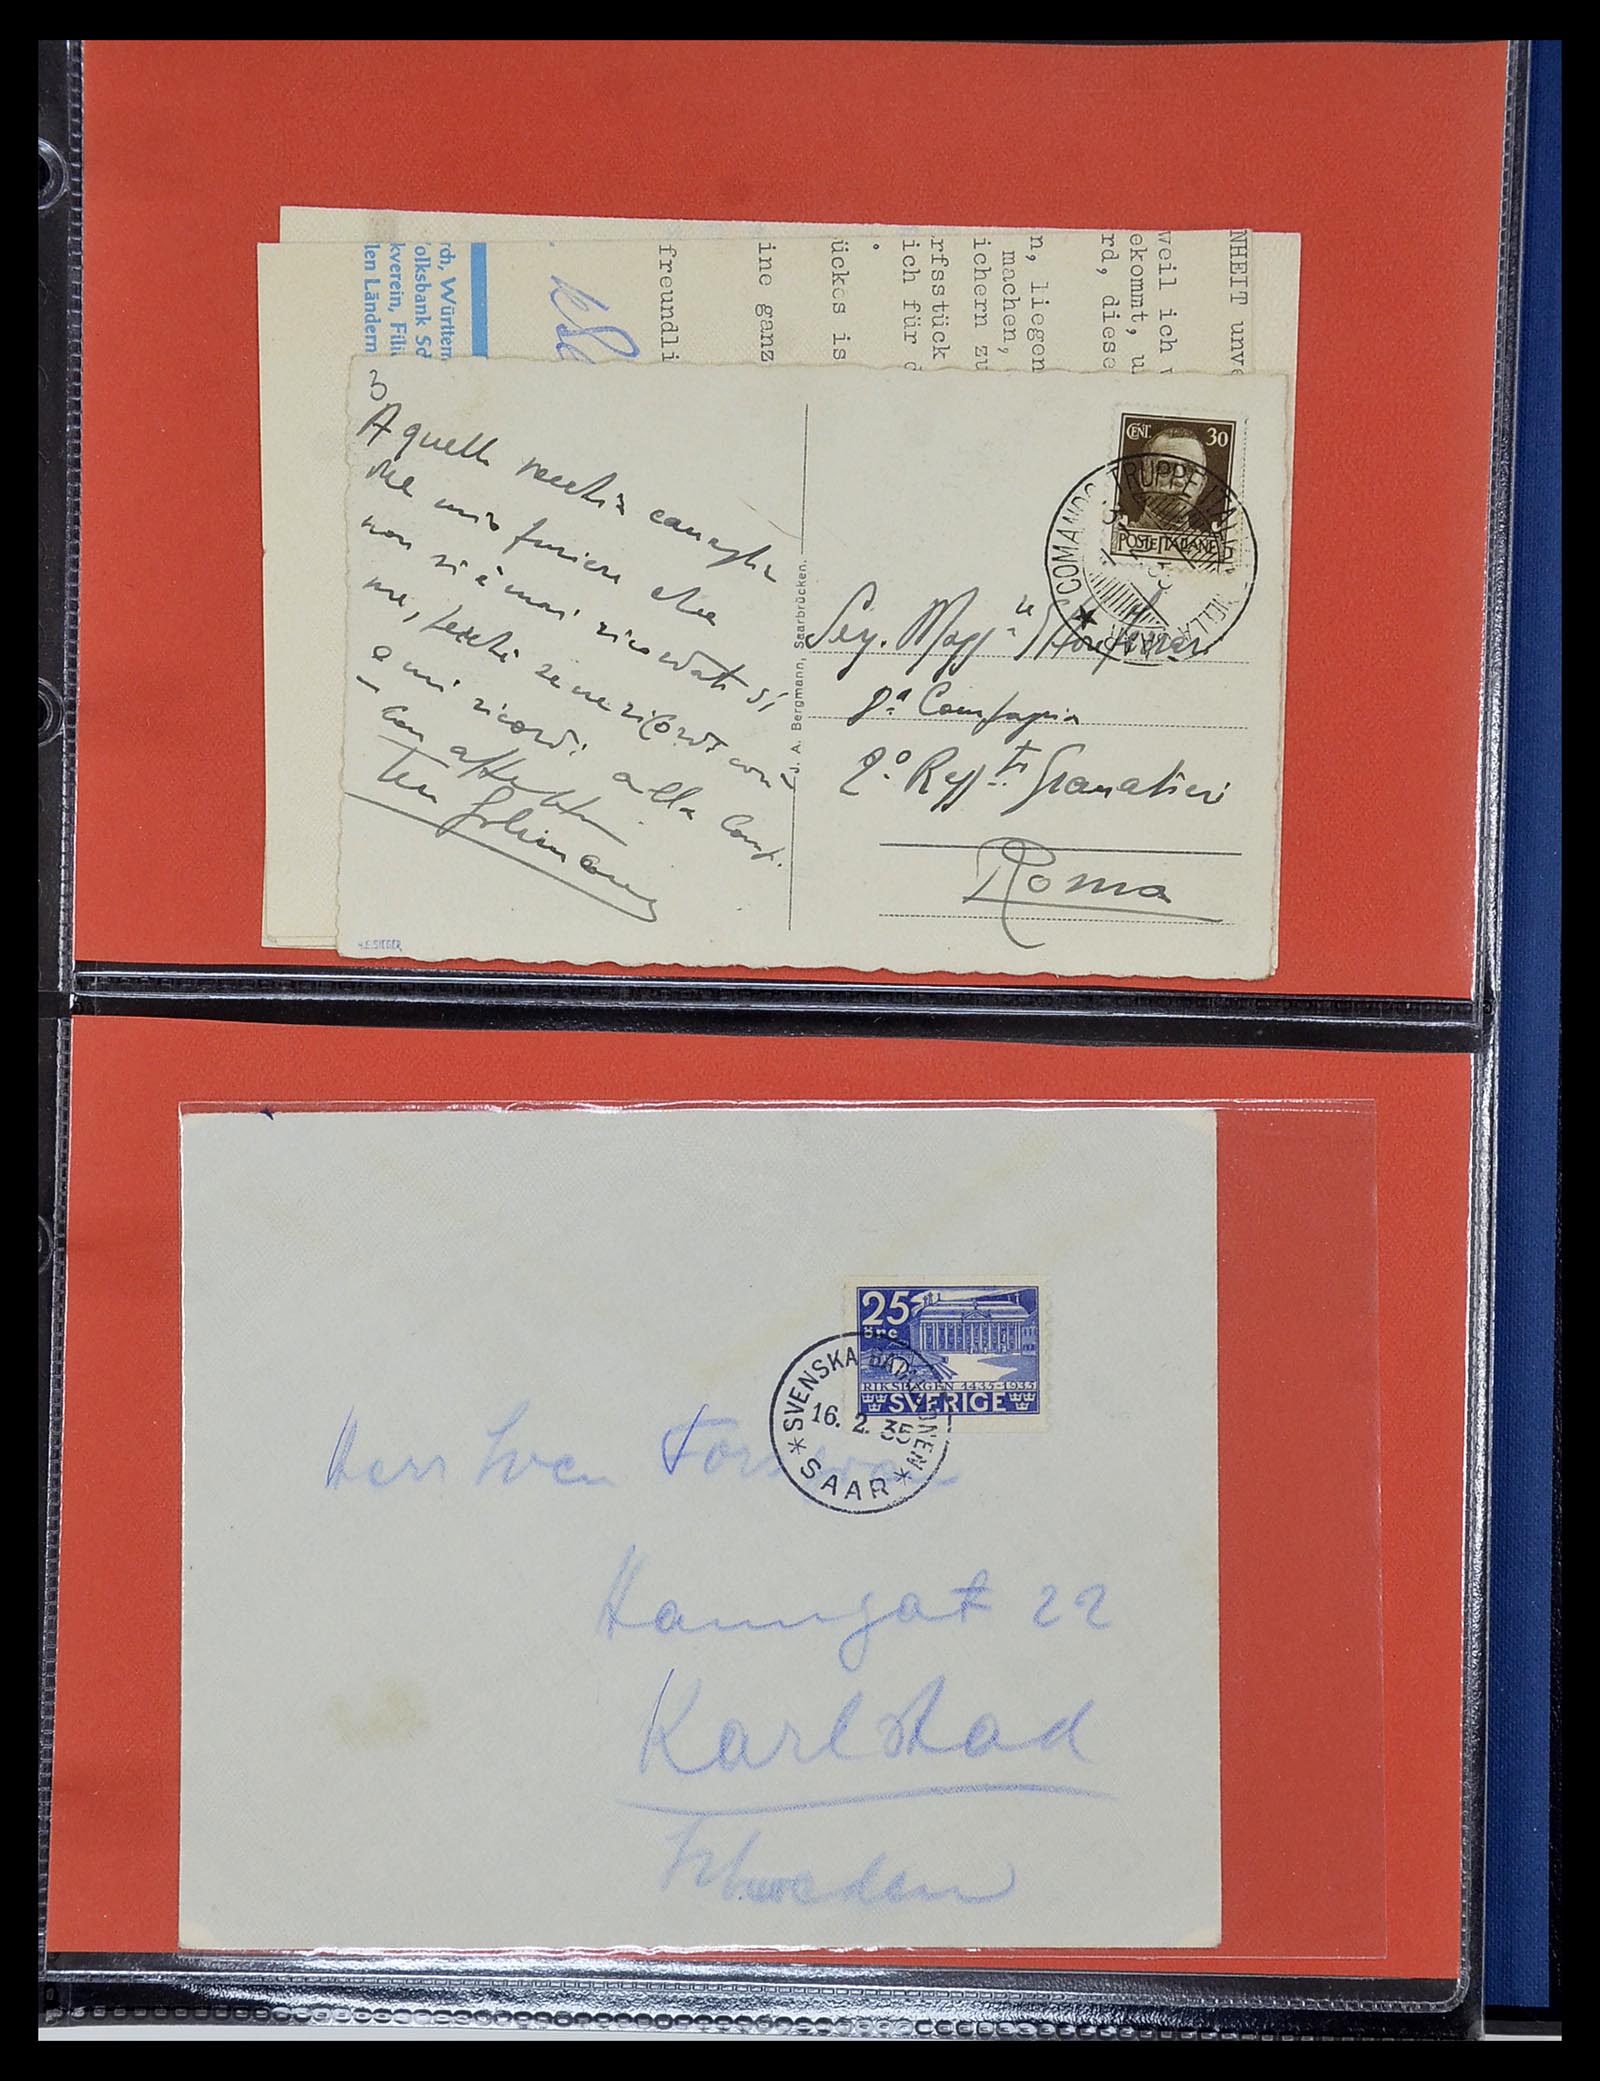 NHEIT unve
weil ich w
ekommt, u
rd, diese
n, liegen
machen,
ichern zu
rfsstück
ich für d
ückes is
ine ganz
freundli
rch, Württem
olksbank Sc
kverein, Fili
len Ländern
3
A quella vecchia canaglia
che
non si è mai ricordato di
me, perché se ne ricordi
e mi ricordi alla Comp.
Con affetto
Ten
H.E. SIEGER
J. A. Bergmann, Saarbrücken.
CENT. 30
POSTE ITALIANE
COMANDO TRUPPE ITALIANE NELLA SAAR
Serg. Magg.
8ª Compagnia
2º Regg.to Granatieri
Roma
25
öre
RIKSDAGEN 1435-1935
SVERIGE
SVENSKA BATALJONEN
16. 2. 35
SAAR
Herr Sven
Hamngat 22
Karlstad
Schweden